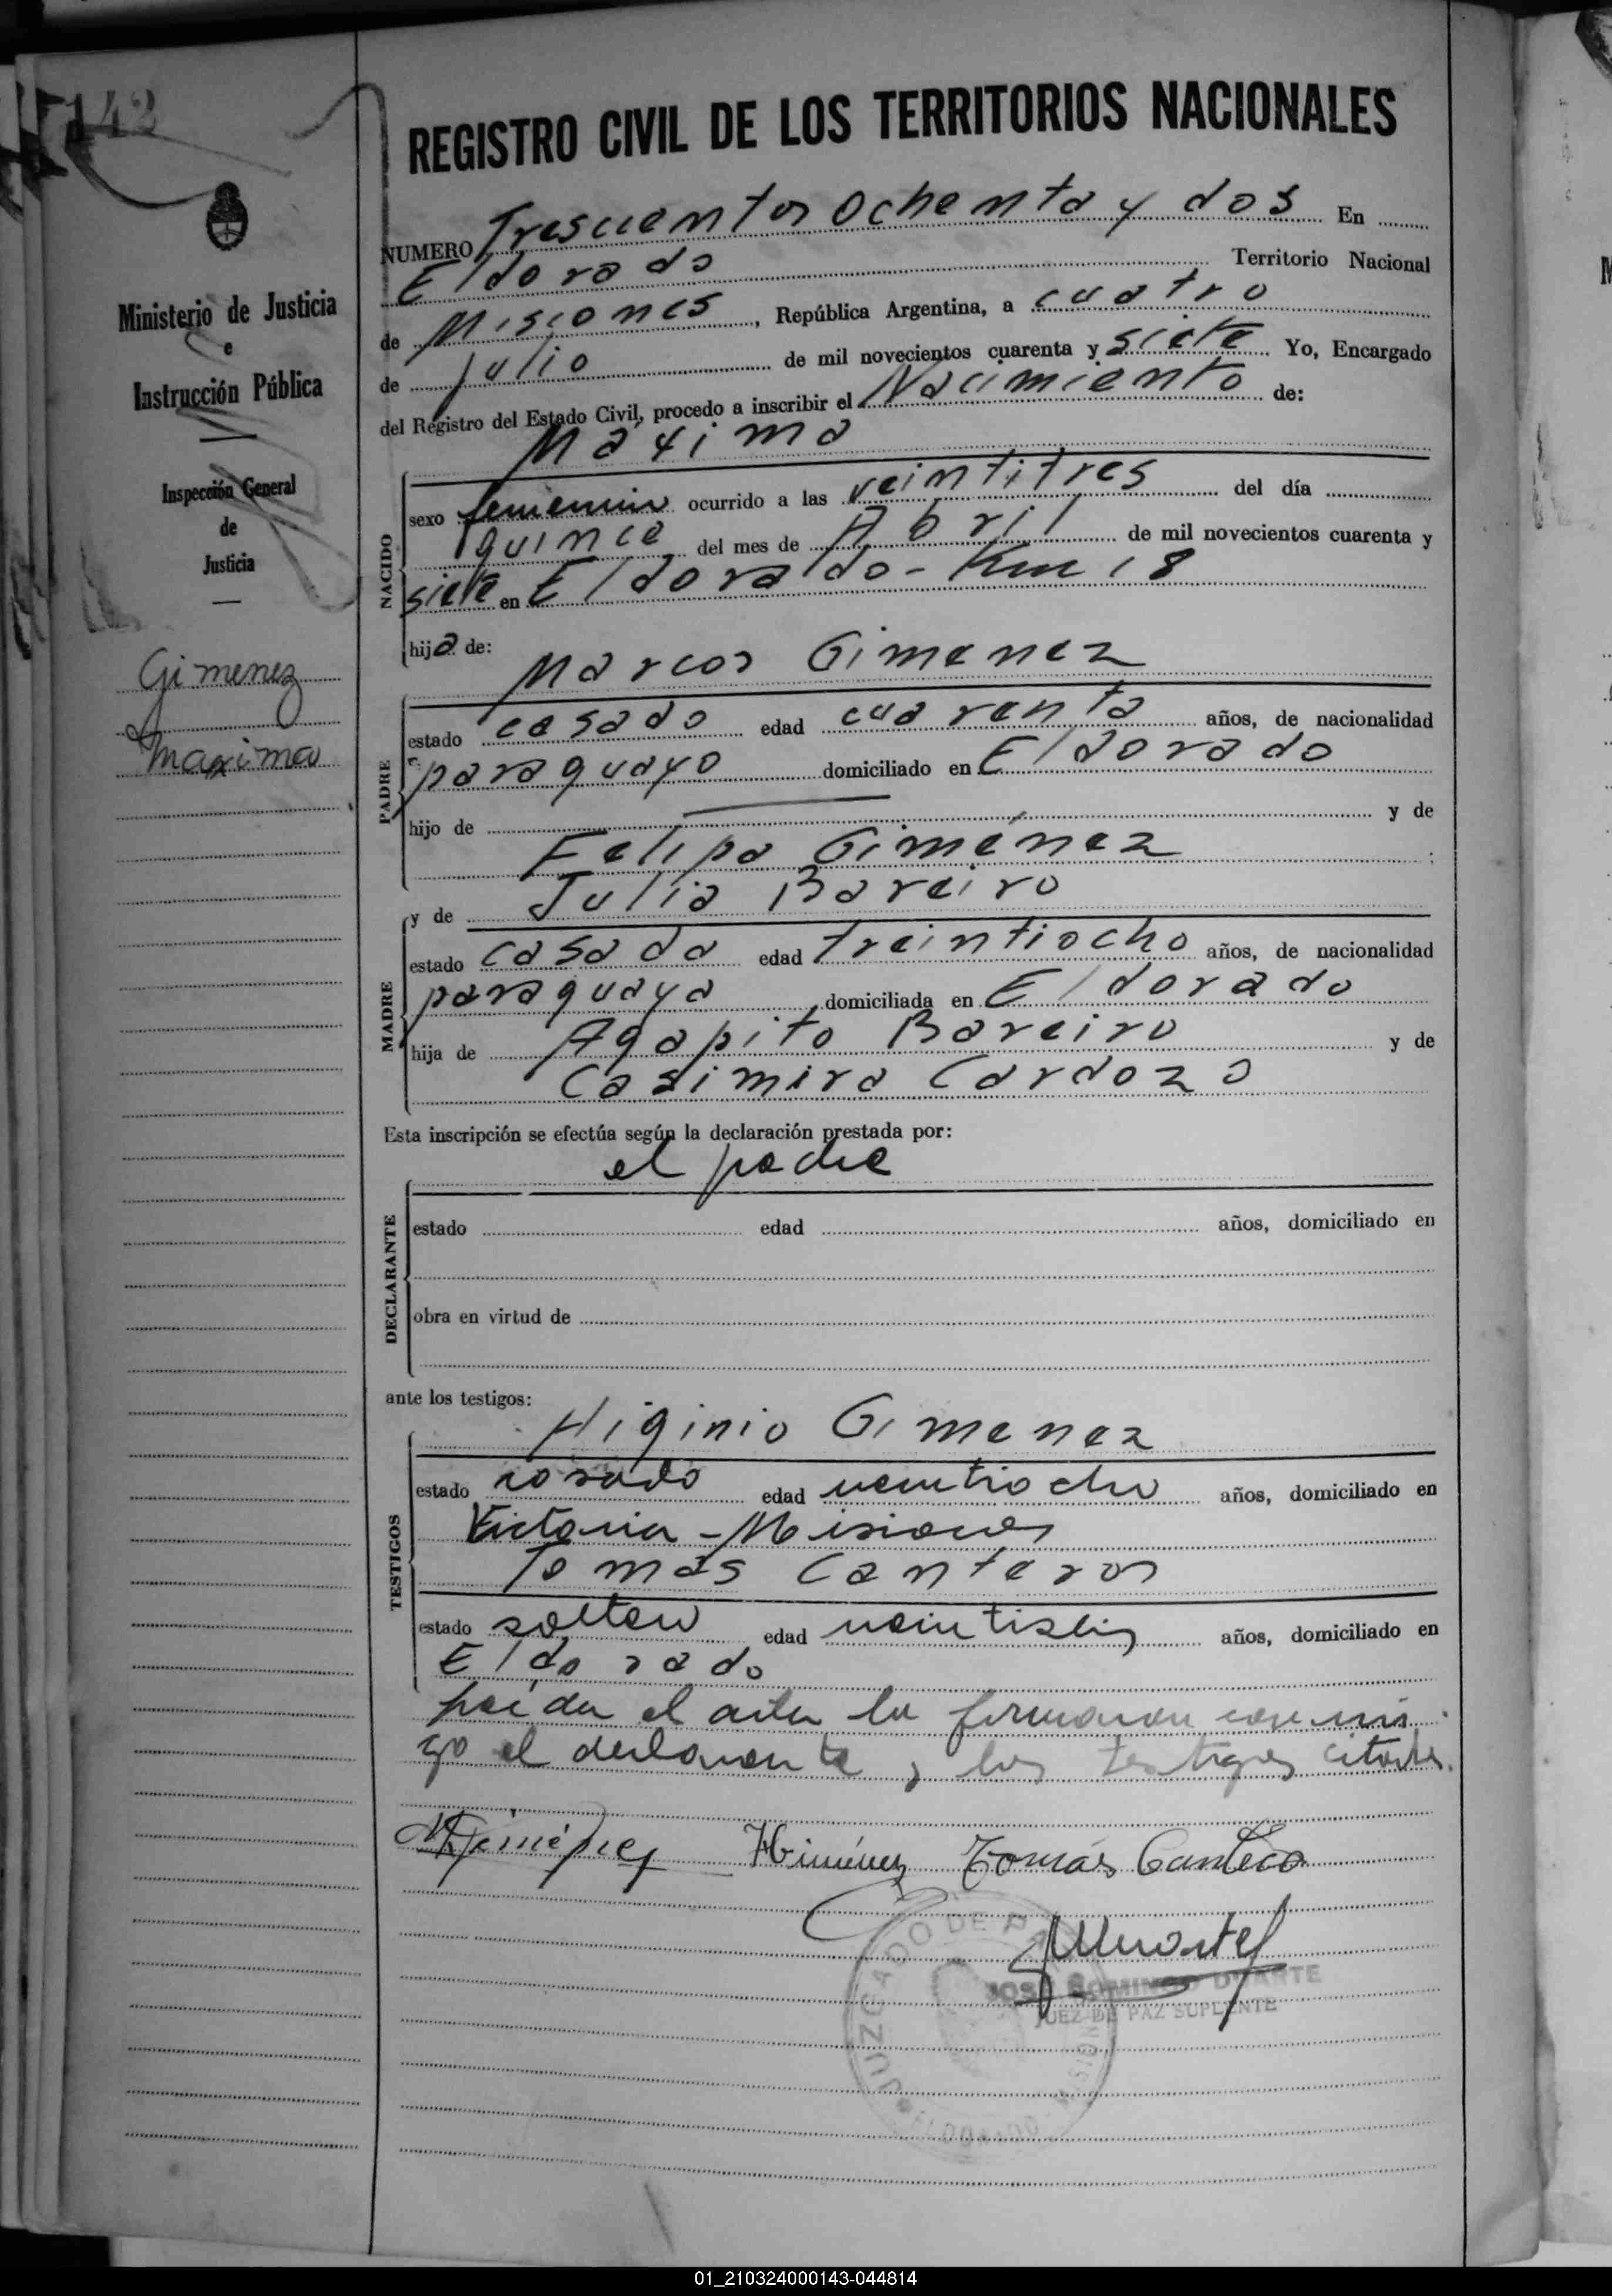 142
REGISTRO CIVIL DE LOS TERRITORIOS NACIONALES
NUMERO Trescientos ochenta y dos En
Eldorado Territorio Nacional
de Misiones, República Argentina, a cuatro
de julio de mil novecientos cuarenta y siete Yo, Encargado
del Registro del Estado Civil, procedo a inscribir el Nacimiento de:
Máxima
Ministerio de Justicia
e
Instrucción Pública
Inspección General
de
Justicia
Gimenez
Maxima
NACIDO
sexo femenino ocurrido a las veintitres del día
quince del mes de Abril de mil novecientos cuarenta y
siete en Eldorado - Km 18
hija de:
Marcos Gimenez
PADRE
estado casado edad cuarenta años, de nacionalidad
paraguayo domiciliado en Eldorado
hijo de y de
Felipa Giménez
y de Julia Bareiro
MADRE
estado casada edad treintiocho años, de nacionalidad
paraguaya, domiciliada en Eldorado
hija de Agapito Bareiro y de
Casimira Cardozo
Esta inscripción se efectúa según la declaración prestada por:
el padre
DECLARANTE
estado edad años, domiciliado en
obra en virtud de
ante los testigos:
Higinio Gimenez
TESTIGOS
estado casado edad veintiocho años, domiciliado en
Victoria - Misiones
Tomás Canteros
estado soltero edad veintiseis años, domiciliado en
Eldorado
el acta la firmaron conmi
go el declarante y los testigos citados.
Giménez Himénez Tomás Cantero
JUZGADO DE PAZ
JOSE DOMINGO DUARTE
JUEZ DE PAZ SUPLENTE
ELDORADO
01_210324000143-044814